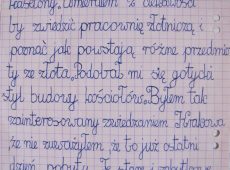 kościoły. Umierałem z ciekawości
by zwiedzić pracownię złotniczą i
poznać jak powstają różne przedmio
ty ze złota. Podobał mi się gotycki
styl budowy kościołów. Byłem tak
zainteresowany zwiedzaniem Krakowa
że nie zauważyłem, że to już ostatni
dzień pobytu